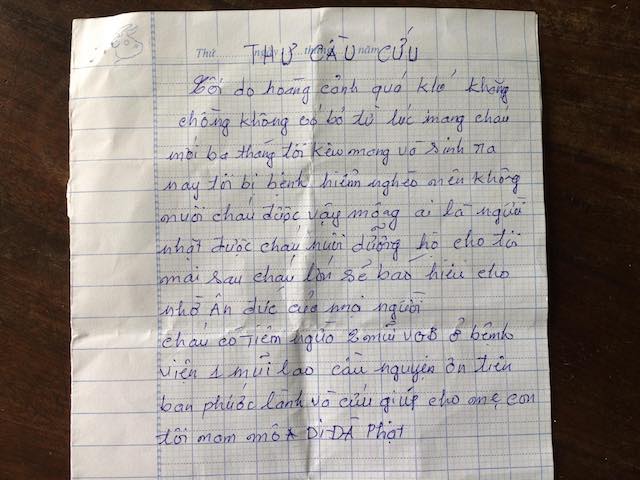 Thứ ngày tháng năm
THƯ CẦU CỨU
Tôi do hoàng cảnh quá khó khăng
chồng không có bỏ từ lúc mang cháu
mới ba tháng tôi kêu mang và sinh ra
nay tôi bị bệnh hiểm nghèo nên không
nuôi cháu được vậy mông ai là người
nhật được cháu nuôi dưỡng hộ cho tôi
mai sau cháu lớn sẽ báo hiếu cho
nhờ Ân đức của mọi người
cháu có Tiêm ngừa 2 mũi VGB ở bệnh
viện 1 mũi lao cầu nguyện ơn tiên
ban phước lành và cứu giúp cho mẹ con
tôi nam mô A Di-Dà Phật